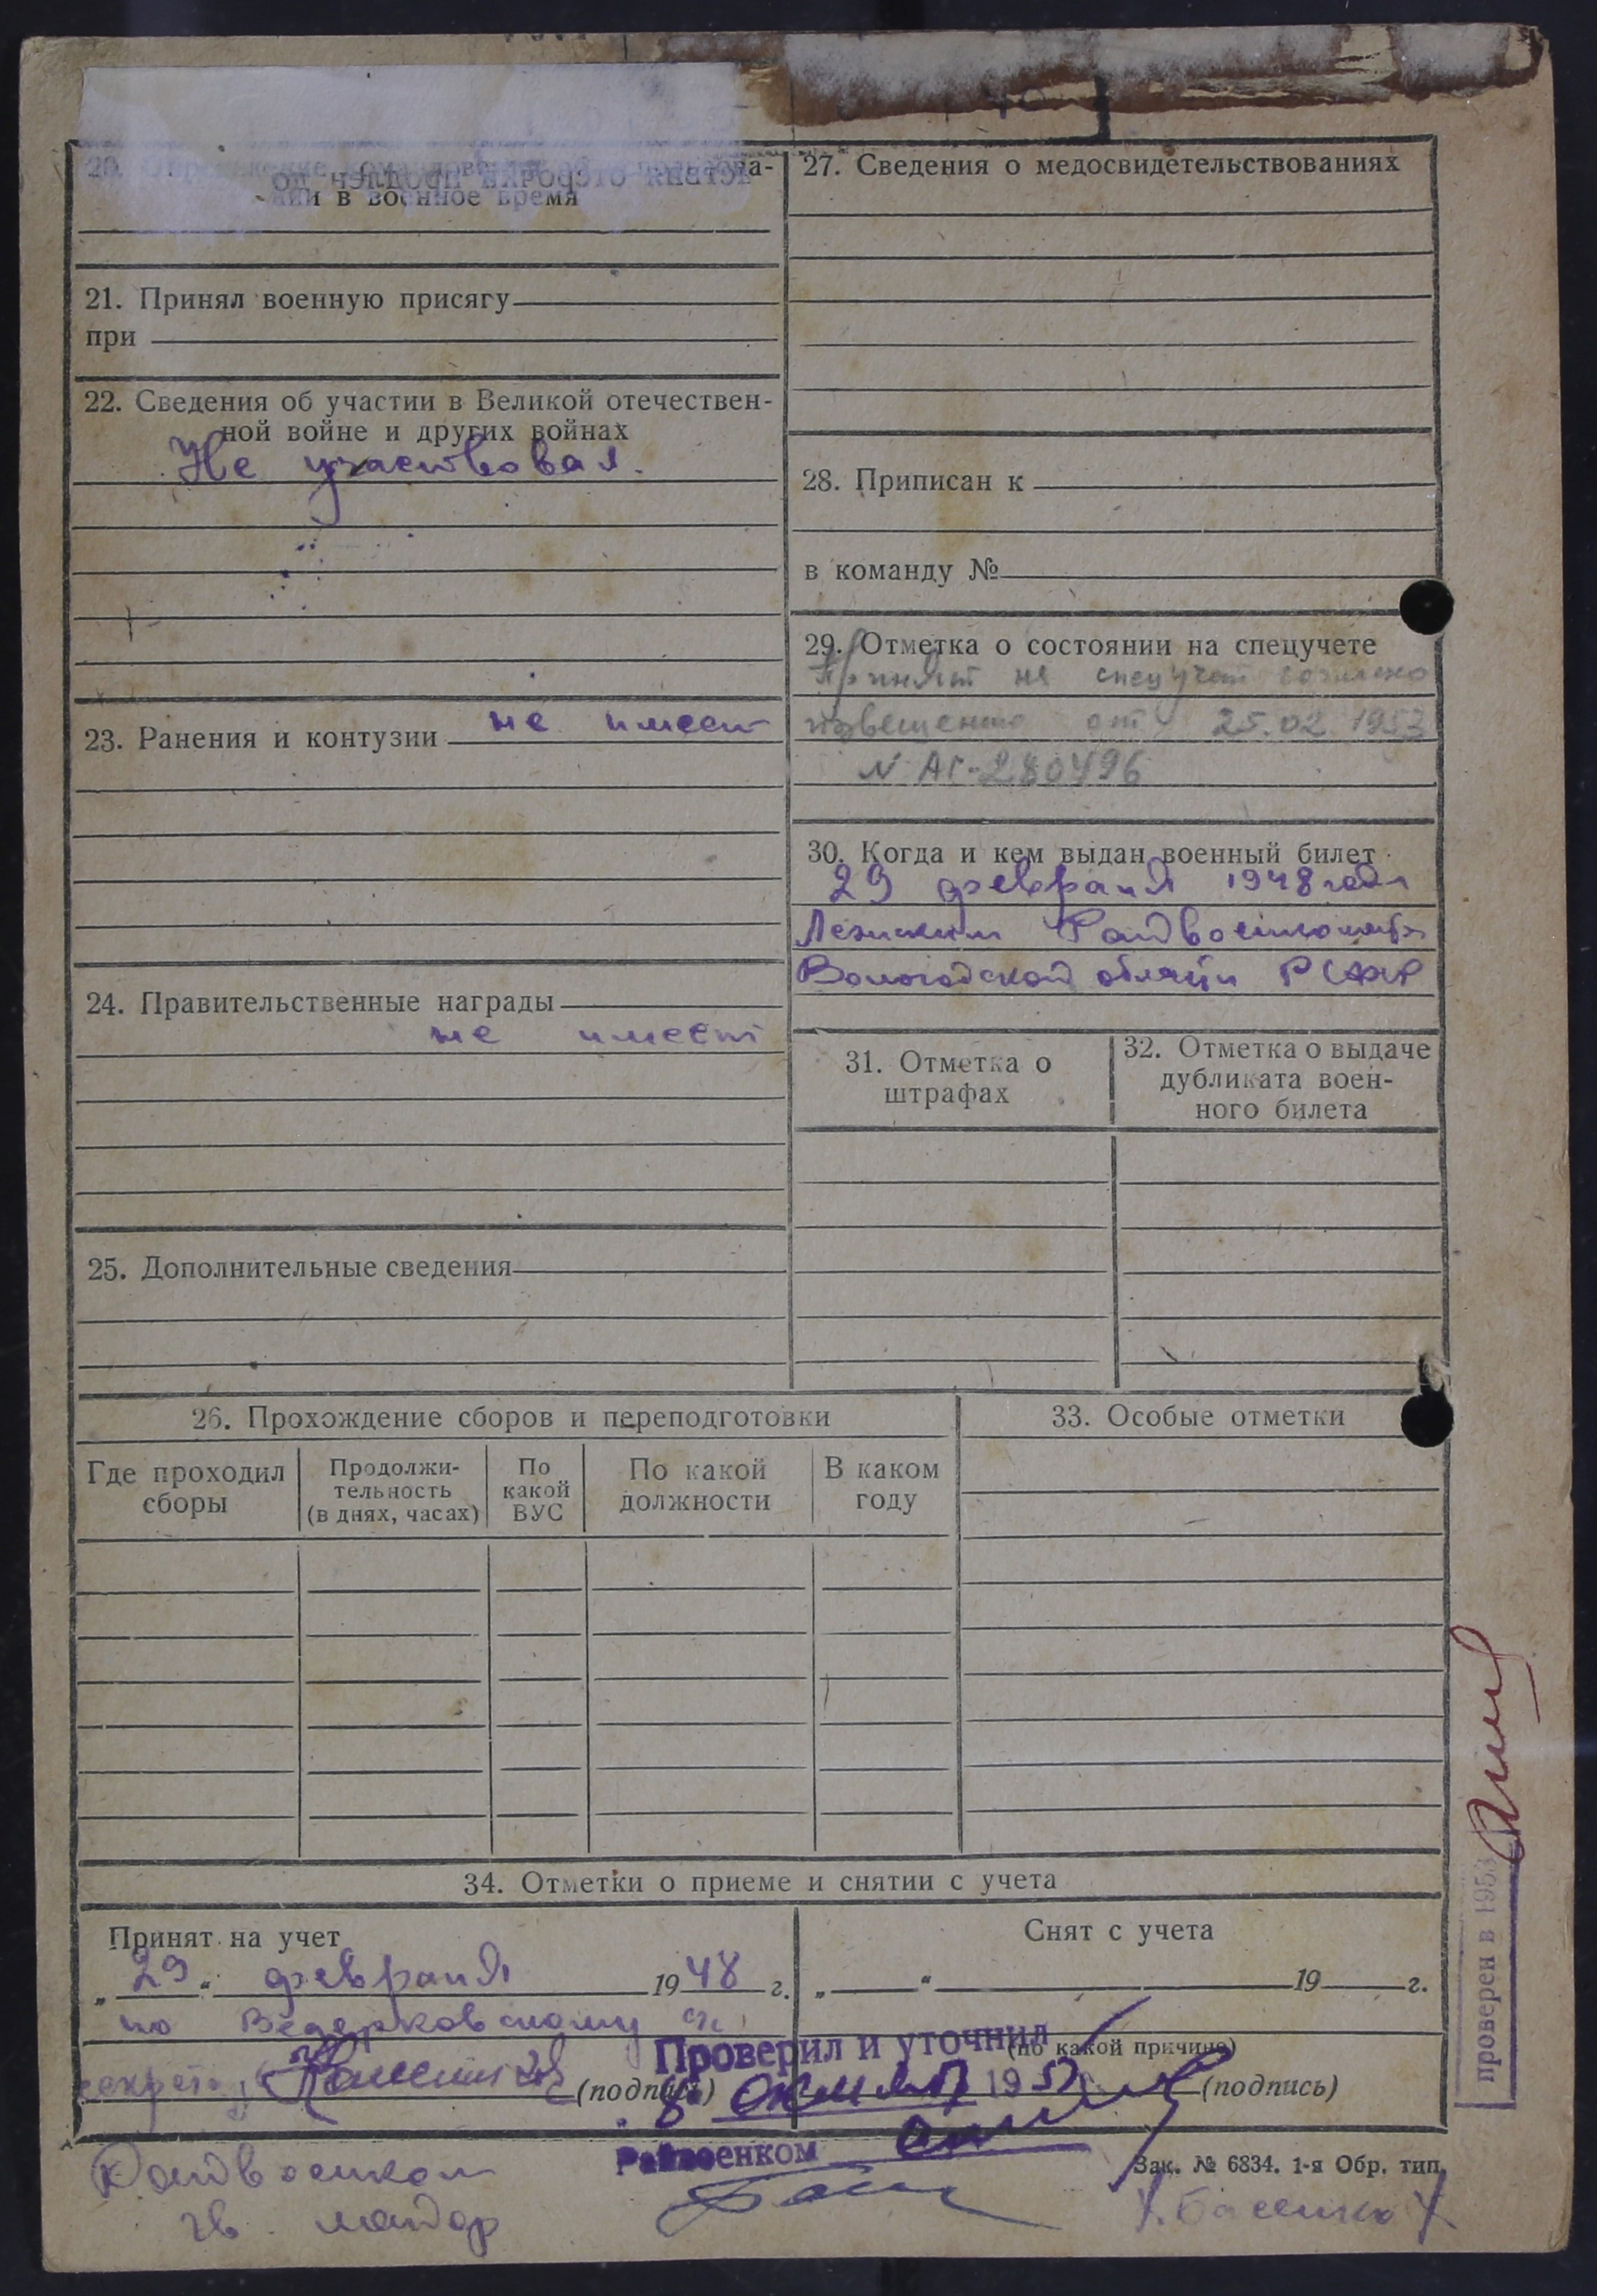 в военное время
21. Принял военную присягу
при
22. Сведения об участии в Великой отечествен-
ной войне и других войнах
Не участвовал.
23. Ранения и контузии не имеет
24. Правительственные награды
не имеет
25. Дополнительные сведения
27. Сведения о медосвидетельствованиях
28. Приписан к
в команду №
29. Отметка о состоянии на спецучете
Принят на спецучет согласно
извещению от 25.02 1953
N АГ-280496
30. Когда и кем выдан военный билет
29 февраля 1948 года
Райвоенкоматом
Вологодской области РСФСР
31. Отметка о
штрафах
32. Отметка о выдаче
дубликата воен-
ного билета
26. Прохождение сборов и переподготовки
Где проходил
сборы
Продолжи-
тельность
(в днях, часах)
По
какой
ВУС
По какой
должности
В каком
году
33. Особые отметки
34. Отметки о приеме и снятии с учета
Принят на учет
„29“ февраля 1948 г.
по Ведерковскому
(подпись)
Снят с учета
„ “ 19 г.
(по какой причине)
(подпись)
Проверил и уточнил
8 195
Райвоенком
Райвоенком
гв. майор
Зак. № 6834. 1-я Обр. тип.
проверен в 1953